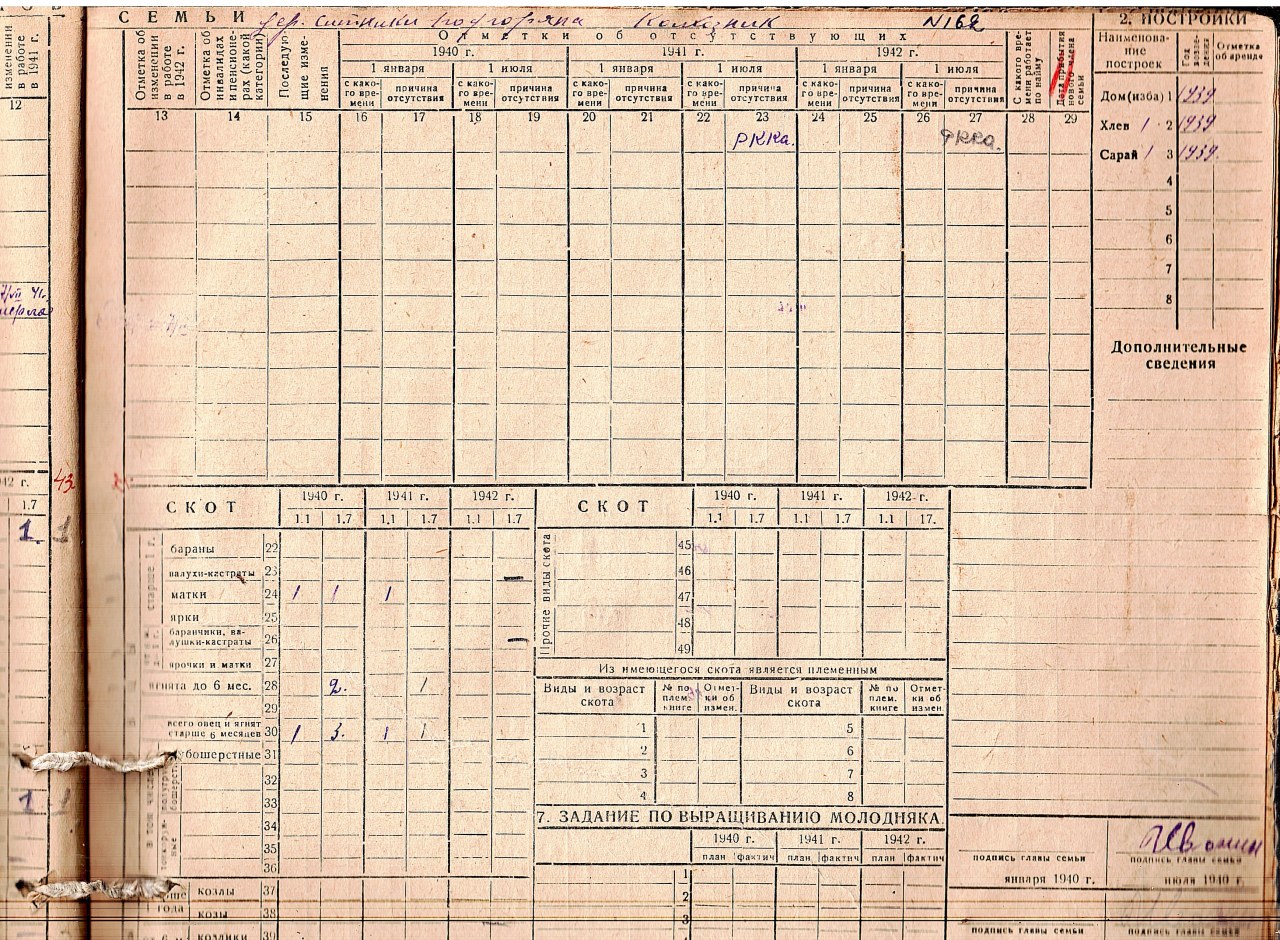 СЕМЬИ дер. Колхозник N162
2. ПОСТРОЙКИ
Отметки об отсутствующих
1940 г. 1941 г. 1942 г.
1 января 1 июля 1 января 1 июля 1 января 1 июля
изменении в работе в 1941 г.
Отметка об изменении в работе в 1942 г.
Отметка об инвалидах и пенсионерах (какой категории)
Последующие изменения
с какого времени причина отсутствия с какого времени причина отсутствия с какого времени причина отсутствия с какого времени причина отсутствия с какого времени причина отсутствия с какого времени причина отсутствия
С какого времени работает по найму
Дата прибытия нового члена семьи
12 13 14 15 16 17 18 19 20 21 22 23 24 25 26 27 28 29
РККа. РККа.
Наименование построек Год возведения Отметка об аренде
Дом (изба) 1 1939
Хлев 1 2 1939
Сарай 1 3 1939.
4
5
6
7
8
Дополнительные
сведения
43
1.7
1
СКОТ 1940 г. 1941 г. 1942 г.
1.1 1.7 1.1 1.7 1.1 1.7
старше 1 г.
бараны 22
валухи-кастраты 23
матки 24 1 1 1
ярки 25
баранчики, валушки-кастраты 26
ярочки и матки 27
ягнята до 6 мес. 28 2. 1
29
всего овец и ягнят старше 6 месяцев 30 1 3. 1 1
31
32
33
34
35
36
козлы 37
козы 38
козлики 39
СКОТ 1940 г. 1941 г. 1942 г.
1.1 1.7 1.1 1.7 1.1 17.
Прочие виды скота
45
46
47
48
49
Из имеющегося скота является племенным
Виды и возраст скота № по плем. книге Отметки об измен. Виды и возраст скота № по плем. книге Отметки об измен.
1 5
2 6
3 7
4 8
7. ЗАДАНИЕ ПО ВЫРАЩИВАНИЮ МОЛОДНЯКА
1940 г. 1941 г. 1942 г.
план фактич план фактич план фактич
1
2
3
подпись главы семьи подпись главы семьи
января 1940 г. июля 1940 г.
подпись главы семьи подпись главы семьи